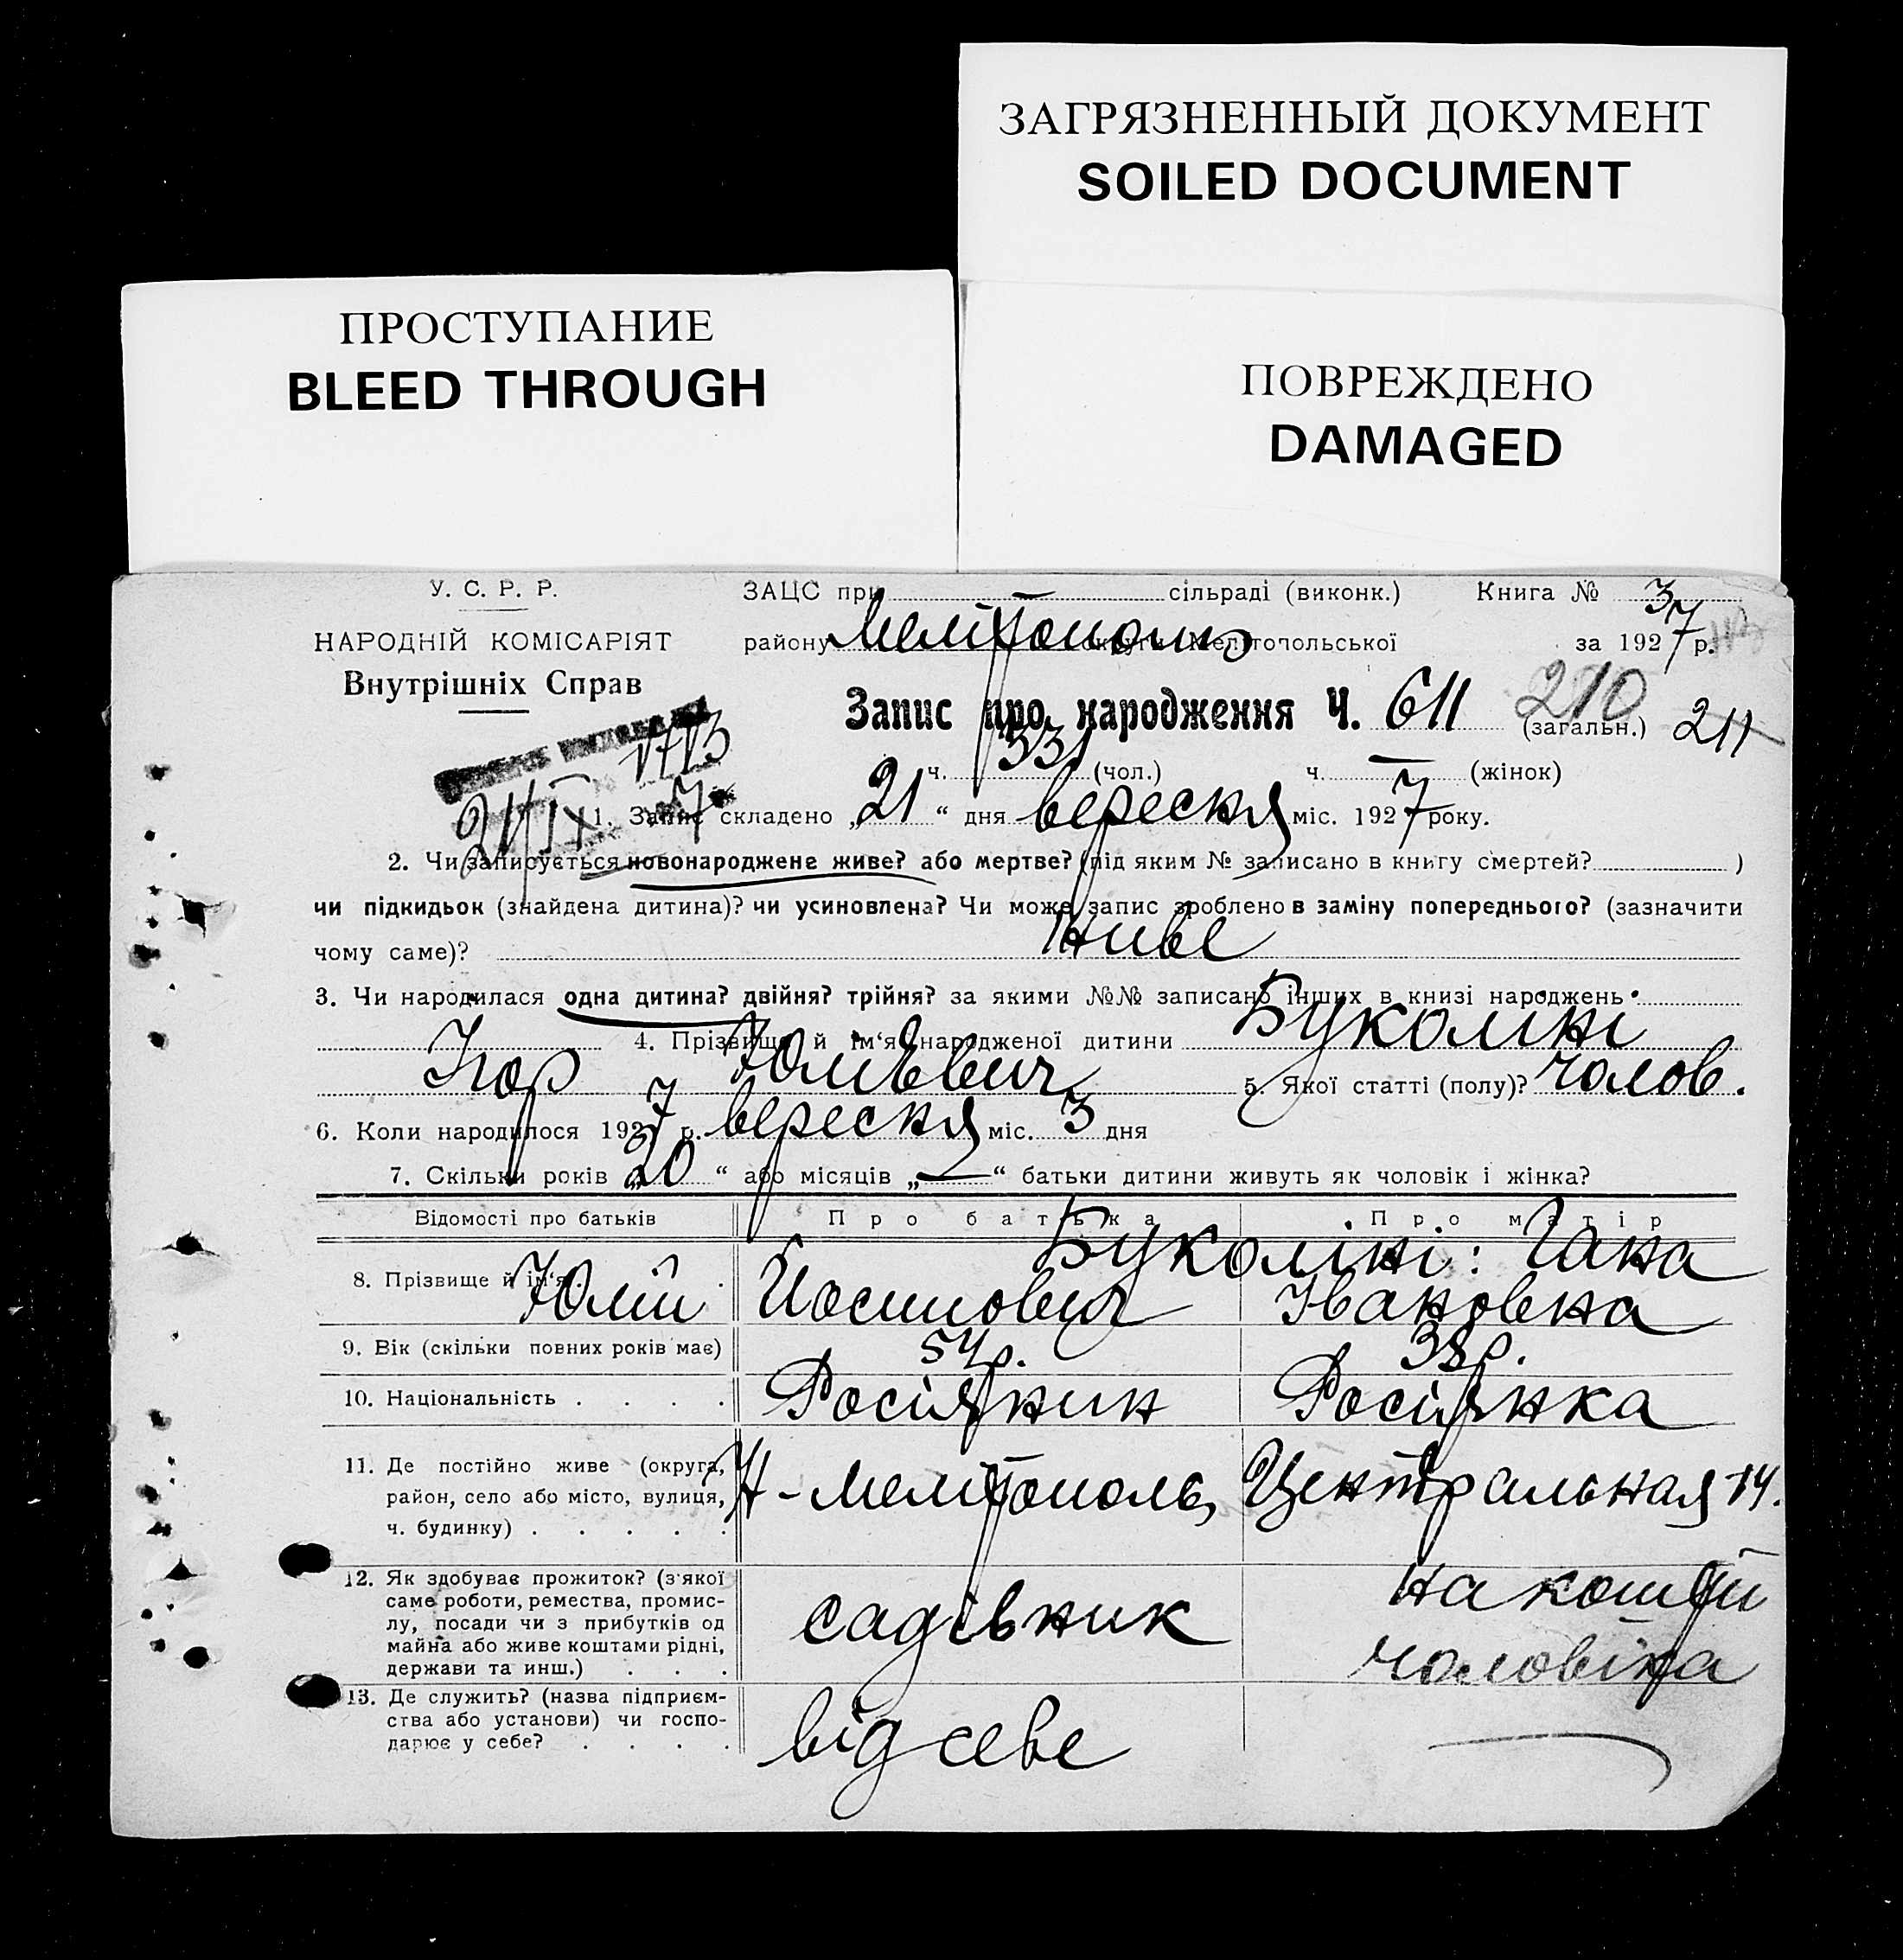 ЗАГРЯЗНЕННЫЙ ДОКУМЕНТ
SOILED DOCUMENT
ПРОСТУПАНИЕ
BLEED THROUGH
ПОВРЕЖДЕНО
DAMAGED
У. С. Р. Р.
НАРОДНІЙ КОМІСАРІЯТ
Внутрішніх Справ
ЗАЦС при — сільраді (виконк.) Книга № 3
району Мелітополь округи Мелітопольської за 1927 р.
Запис про народження Ч. 611 (загальн.) 210 211
1713
ч. 331 (чол.) ч. — (жінок)
21/IX 7
1. Запис складено „21“ дня вересня міс. 1927 року.
2. Чи записується новонароджене живе? або мертве? (під яким № записано в книгу смертей? )
чи підкидьок (знайдена дитина)? чи усиновлена? Чи може запис зроблено в заміну попереднього? (зазначити
чому саме)? живе
3. Чи народилася одна дитина? двійня? трійня? за якими №№ записано інших в книзі народжень
4. Прізвище й ім‘я народженої дитини Буколіні
Ігор Юлієвич 5. Якої статті (полу)? чолов.
6. Коли народилося 1927 р. вересня міс. 3 дня
7. Скільки років „20“ або місяців „—“ батьки дитини живуть як чоловік і жінка?
Відомості про батьків Про батька Про матір
Буколіні: Гана
8. Прізвище й ім‘я Юлій Йосипович Івановена
9. Вік (скільки повних років має) 54р. 38р.
10. Національність Росіянин Росіянка
11. Де постійно живе (округа,
район, село або місто, вулиця,
ч. будинку)
Н-Мелітополь, Центральная 14.
12. Як здобуває прожиток? (з‘якої
саме роботи, ремества, промис-
лу, посади чи з прибутків од
майна або живе коштами рідні,
держави та инш.)
садівник на кошти
чоловіка
13. Де служить? (назва підприєм-
ства або установи) чи госпо-
дарює у себе?
від себе —